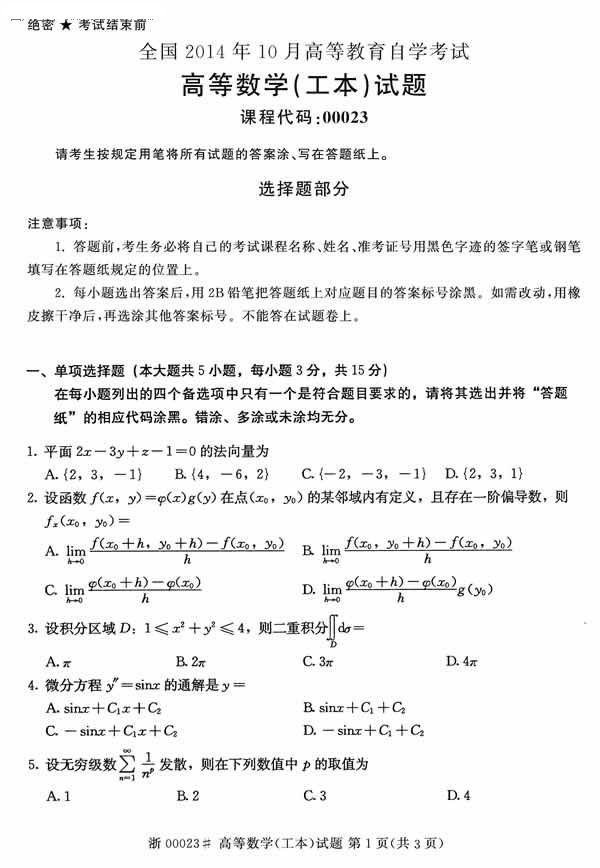 绝密 ★ 考试结束前
全国 2014 年 10 月高等教育自学考试
高等数学(工本)试题
课程代码:00023
请考生按规定用笔将所有试题的答案涂、写在答题纸上。
选择题部分
注意事项:
1. 答题前,考生务必将自己的考试课程名称、姓名、准考证号用黑色字迹的签字笔或钢笔
填写在答题纸规定的位置上。
2. 每小题选出答案后,用 2B 铅笔把答题纸上对应题目的答案标号涂黑。如需改动,用橡
皮擦干净后,再选涂其他答案标号。不能答在试题卷上。
一、单项选择题(本大题共 5 小题,每小题 3 分,共 15 分)
在每小题列出的四个备选项中只有一个是符合题目要求的,请将其选出并将“答题
纸”的相应代码涂黑。错涂、多涂或未涂均无分。
1. 平面 2x－3y＋z－1＝0 的法向量为
A. {2, 3, －1} B. {4, －6, 2} C. {－2, －3, －1} D. {2, 3, 1}
2. 设函数 f(x, y)＝φ(x)g(y) 在点(x₀, y₀) 的某邻域内有定义，且存在一阶偏导数，则
fₓ(x₀, y₀)＝
A. lim h→0 [f(x₀＋h, y₀＋h)－f(x₀, y₀)]/h B. lim h→0 [f(x₀, y₀＋h)－f(x₀, y₀)]/h
C. lim h→0 [φ(x₀＋h)－φ(x₀)]/h D. lim h→0 [φ(x₀＋h)－φ(x₀)]/h g(y₀)
3. 设积分区域 D: 1≤x²＋y²≤4，则二重积分∬_D dσ＝
A. π B. 2π C. 3π D. 4π
4. 微分方程 y″＝sinx 的通解是 y＝
A. sinx＋C₁x＋C₂ B. sinx＋C₁＋C₂
C. －sinx＋C₁x＋C₂ D. －sinx＋C₁＋C₂
5. 设无穷级数 ∑_{n=1}^{∞} 1/nᵖ 发散，则在下列数值中 p 的取值为
A. 1 B. 2 C. 3 D. 4
浙 00023# 高等数学(工本)试题 第 1 页(共 3 页)